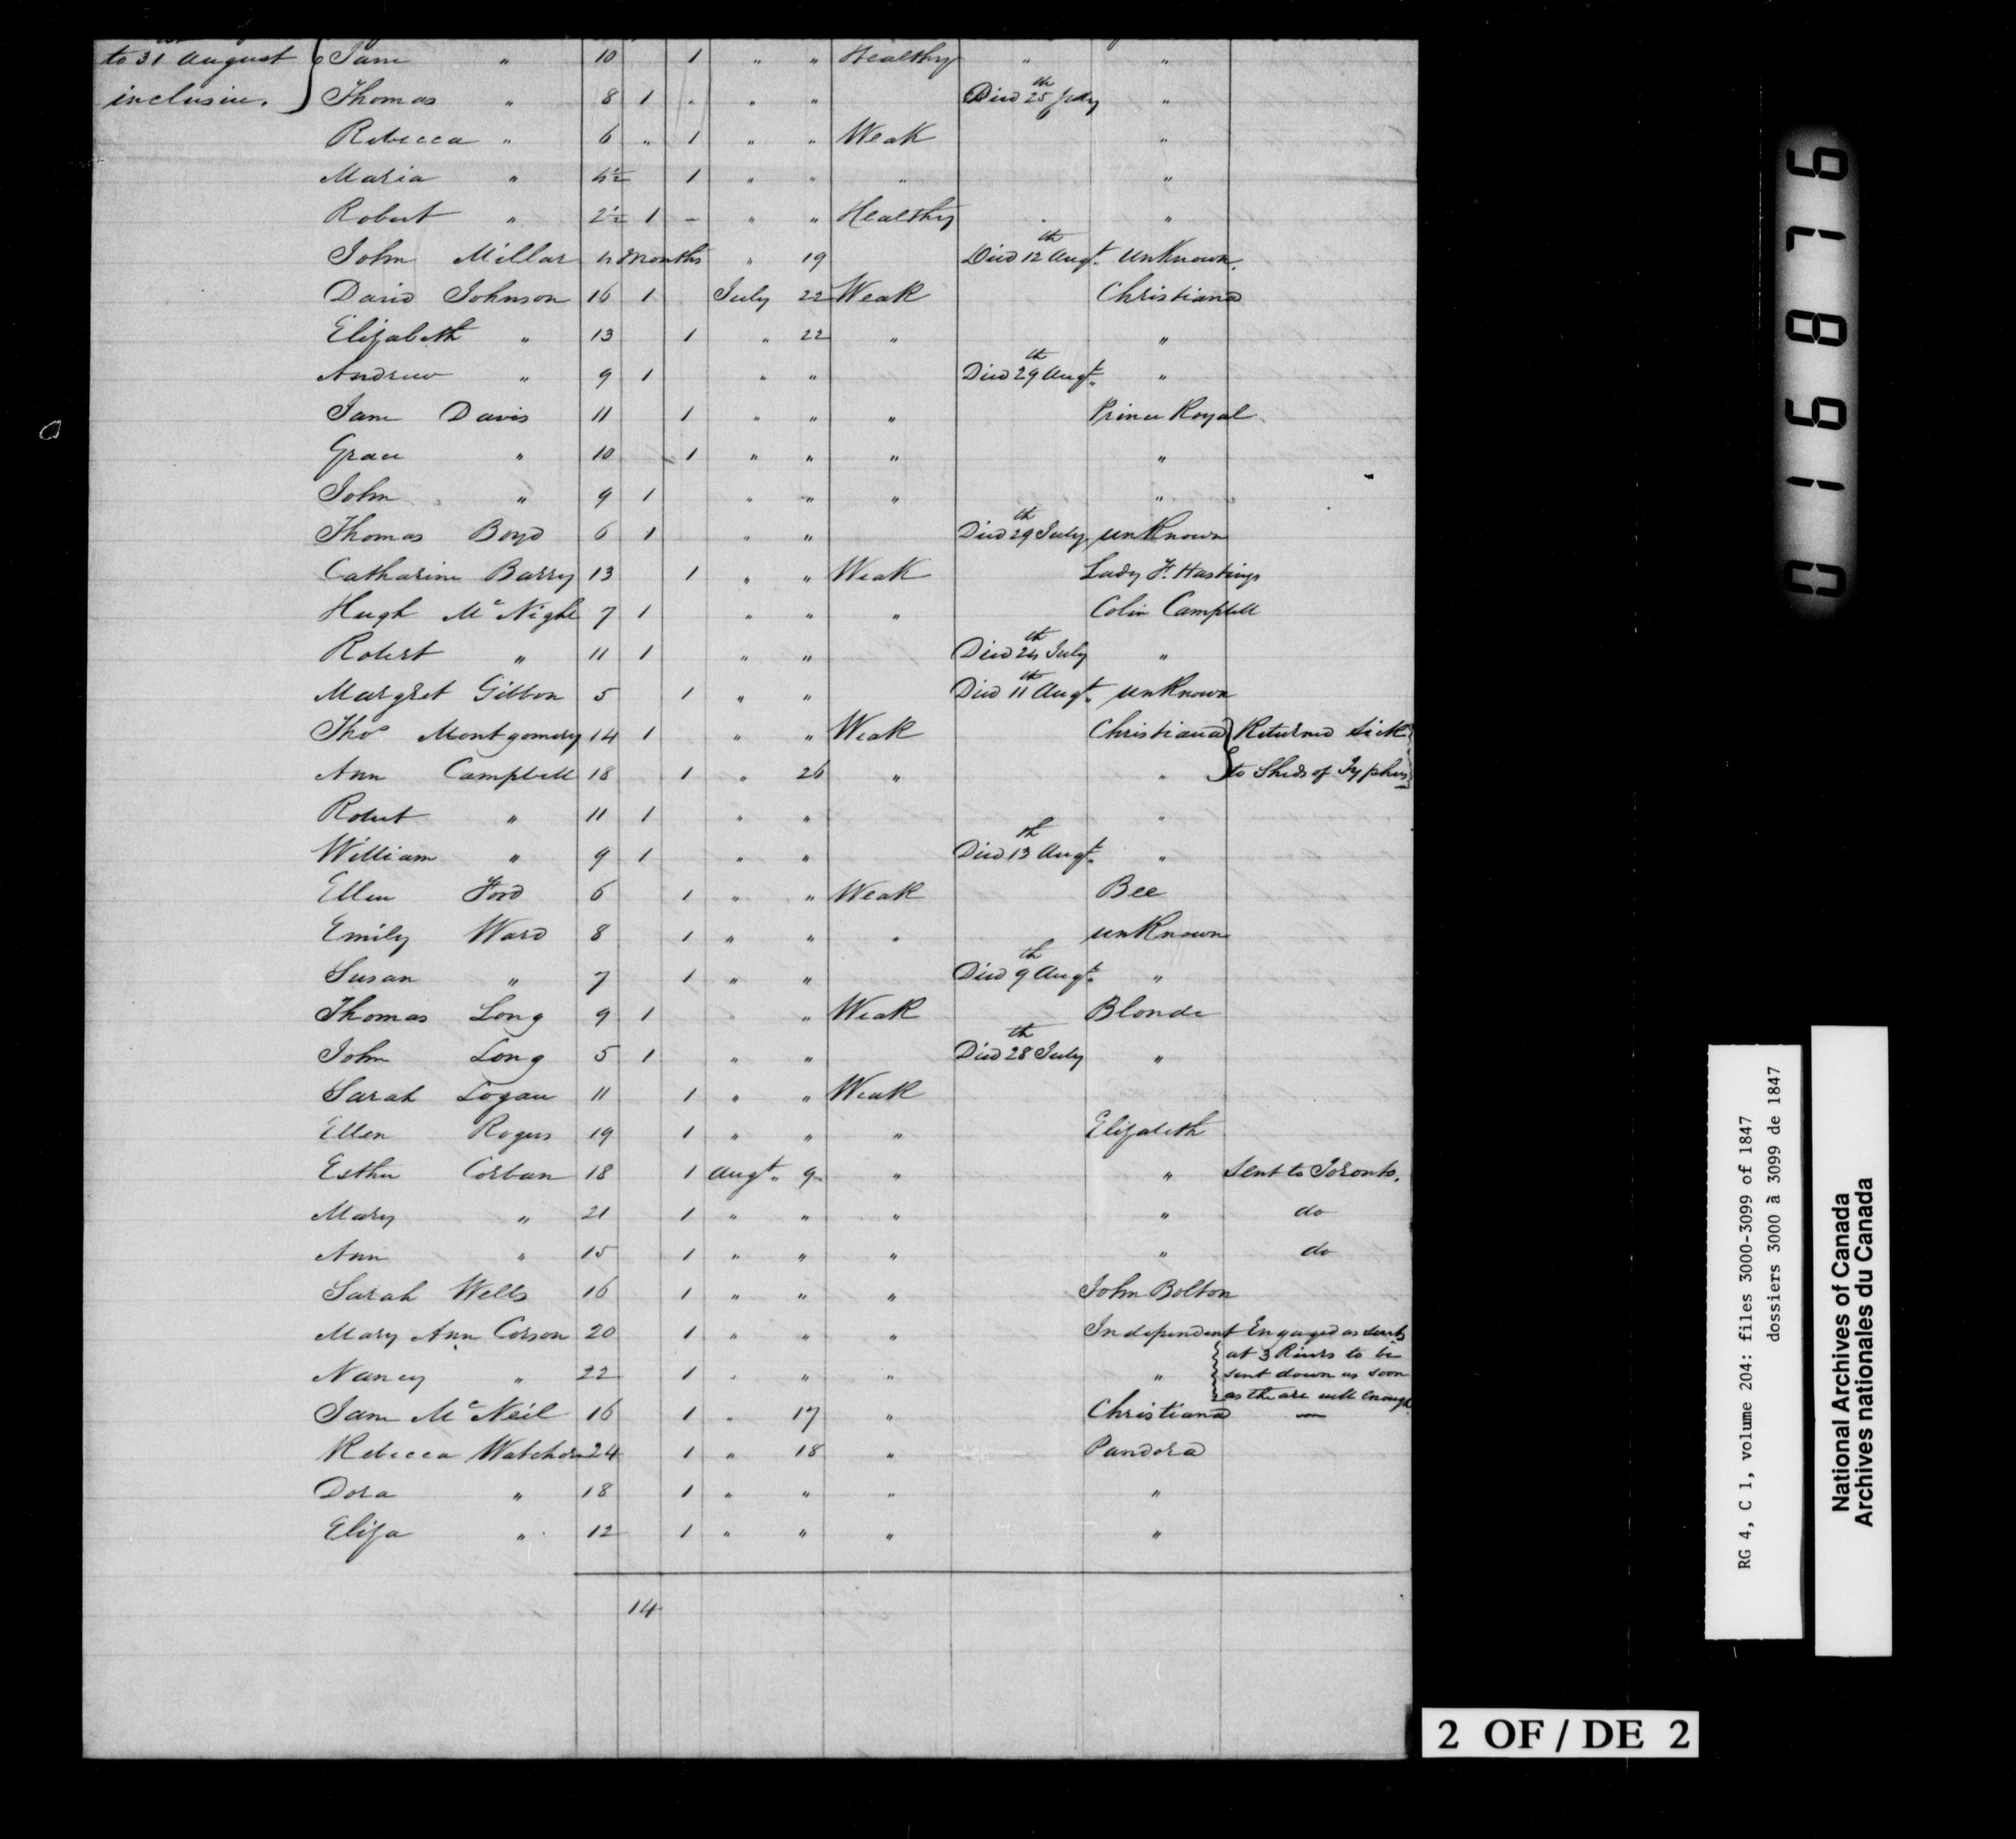 to 31 August Jane " 10 1 " " Healthy " "
inclusive. Thomas " 8 1 " " " Died 25th July "
Rebecca " 6 " 1 " " Weak "
Maria " 4½ 1 " " " "
Robert " 2½ 1 - " " Healthy "
John Millar 4 Months " 19 Died 12th Augt. unknown.
David Johnson 16 1 July 22 Weak Christiana
Elizabeth " 13 1 " 22 " "
Andrew " 9 1 " " Died 29th Augt. "
Jane Davis 11 1 " " " Prince Royal
Grace " 10 1 " " " "
John " 9 1 " " " "
Thomas Boyd 6 1 " " Died 29th July unknown
Catharine Barry 13 1 " " Weak Lady F. Hastings
Hugh McNight 7 1 " " " Colin Campbell
Robert " 11 1 " " Died 24th July "
Margret Gibbon 5 1 " " Died 11th Augt. unknown
Thos Montgomery 14 1 " " Weak Christiana Returned sick
Ann Campbell 18 1 " 26 " " to Sheds of Typhus
Robert " 11 1 " " "
William " 9 1 " " Died 13th Augt. "
Ellen Ford 6 1 " " Weak Bee
Emily Ward 8 1 " " " unknown
Susan " 7 1 " " Died 9th Augt. "
Thomas Long 9 1 " " Weak Blonde
John Long 5 1 " " Died 28th July "
Sarah Logan 11 1 " " Weak
Ellen Rogers 19 1 " " " Elizabeth
Esther Corban 18 1 Augt. 9 " " Sent to Toronto.
Mary " 21 1 " " " " do
Ann " 15 1 " " " " do
Sarah Wells 16 1 " " " John Bolton
Mary Ann Corson 20 1 " " " Independent Engaged as
at 3 Rivers to be
Nancy " 22 1 " " " " sent down as soon
as the are well enough
Jane McNeil 16 1 " 17 " Christiana —
Rebecca 24 1 " 18 " Pandora
Dora " 18 1 " " " "
Eliza " 12 1 " " " "
14
016876
RG 4, C 1, volume 204: files 3000-3099 of 1847
dossiers 3000 à 3099 de 1847
National Archives of Canada
Archives nationales du Canada
2 OF / DE 2